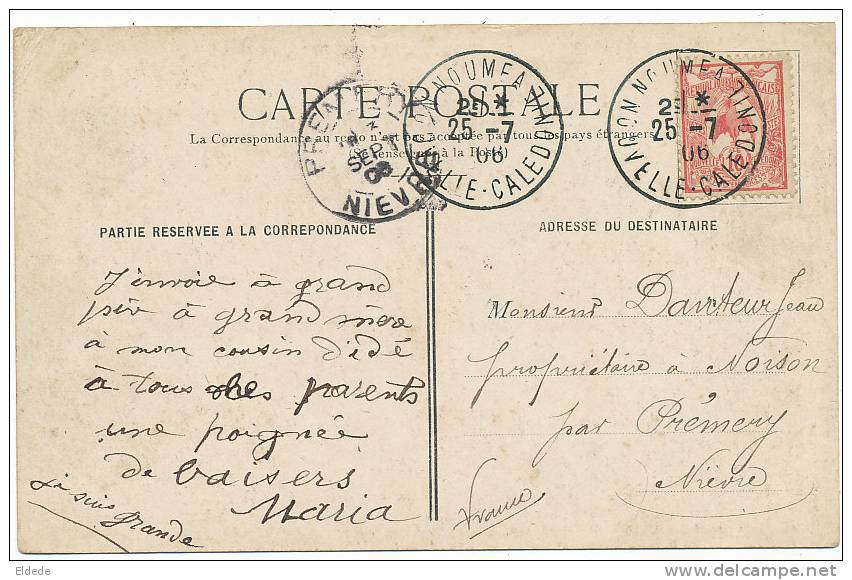 CARTE POSTALE
La Correspondance au recto n'est pas acceptée par tous les pays étrangers
(Se renseigner à la Poste)
NOUMEA
2E *
25 -7
06
NOUVELLE-CALEDONIE
NOUMEA
2E *
25 -7
06
NLLE-CALEDONIE
PREMERY
SEPT
NIEVRE
PARTIE RESERVEE A LA CORREPONDANCE
ADRESSE DU DESTINATAIRE
J'envoie à grand
père à grand mère
à mon cousin d'idé
à tous mes parents
une poignée
de baisers
Maria
Je suis
grande
Monsieur Jean
propriétaire à Noison
par Prémery
Nièvre
France
Eldede
delcampe.net